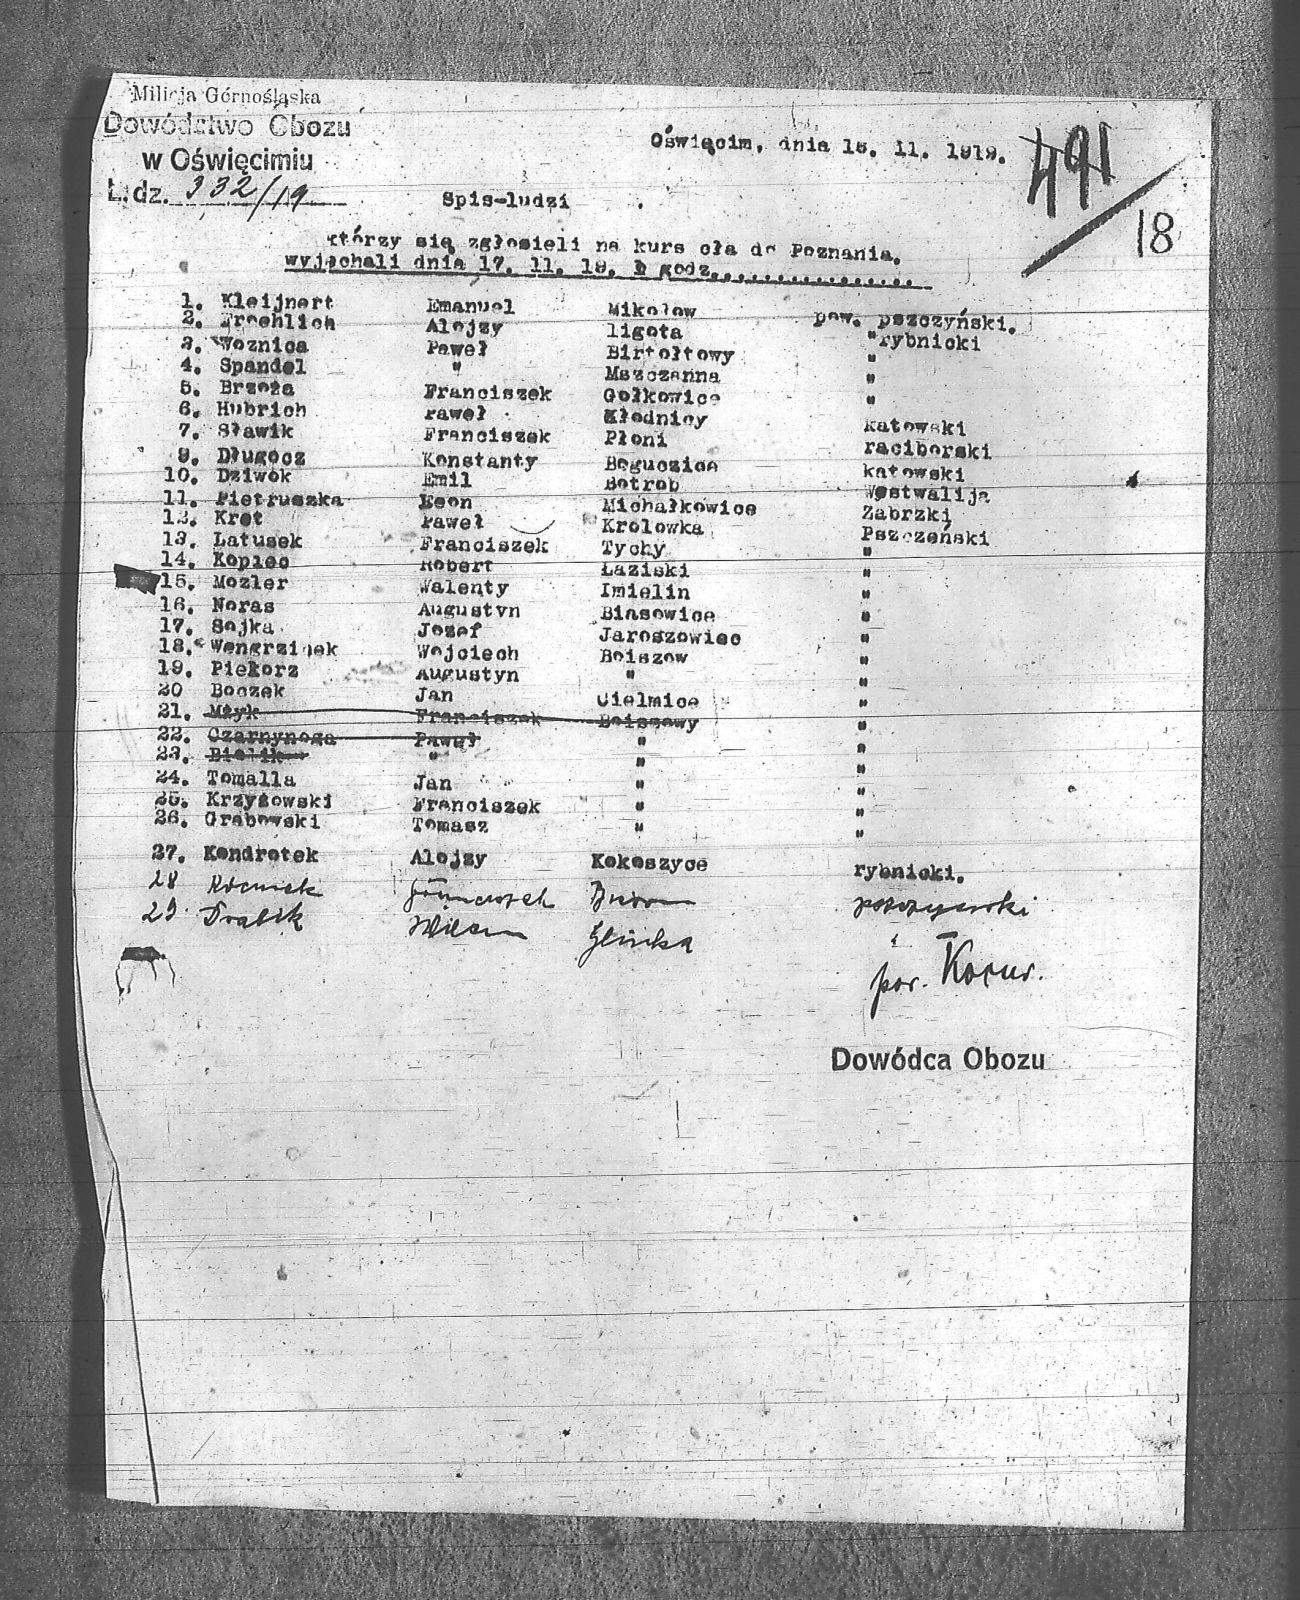 Milicja Górnośląska
Dowództwo Obozu
w Oświęcimiu
L. dz. 332/19
Oświęcim, dnia 15. 11. 1919.
491
18
Spis-ludzi
którzy się zgłosieli na kurs cła do Poznania.
wyjechali dnia 17. 11. 19. o godz................
1. Kleijnert Emanuel Mikołow pow. pszczyński.
2. Froehlich Alojzy ligota " rybnicki
3. Woznica Paweł Birtołtowy "
4. Spandel " Mszczanna "
5. Brzoza Franciszek Gołkowice "
6. Hubrich Paweł Kłodnicy katowski
7. Sławik Franciszek Płoni raciborski
9. Długocz Konstanty Boguczice katowski
10. Dziwok Emil Botrob Westwalija
11. Pietruszka Leon Michałkowice Zabrzki
12. Kret Paweł Krolowka Pszczeński
13. Latusek Franciszek Tychy "
14. Kopiec Robert Łaziski "
15. Mozler Walenty Imielin "
16. Noras Augustyn Biasowice "
17. Sojka Jozef Jaroszowiec "
18. Wengrzinek Wojciech Boiszow "
19. Piekorz Augustyn " "
20 Boczek Jan Cielmice "
21. Mżyk Franciszek Boiszowy "
22. Czarnynoga Paweł " "
23. Bielik " " "
24. Tomalla Jan " "
25. Krzyżowski Franciszek " "
26. Grabowski Tomasz " "
27. Kondrotek Alojzy Kokoszyce rybnicki.
28 Franciszek pszczynski
29 Dralik Wilem Glinka "
por. Kocur.
Dowódca Obozu